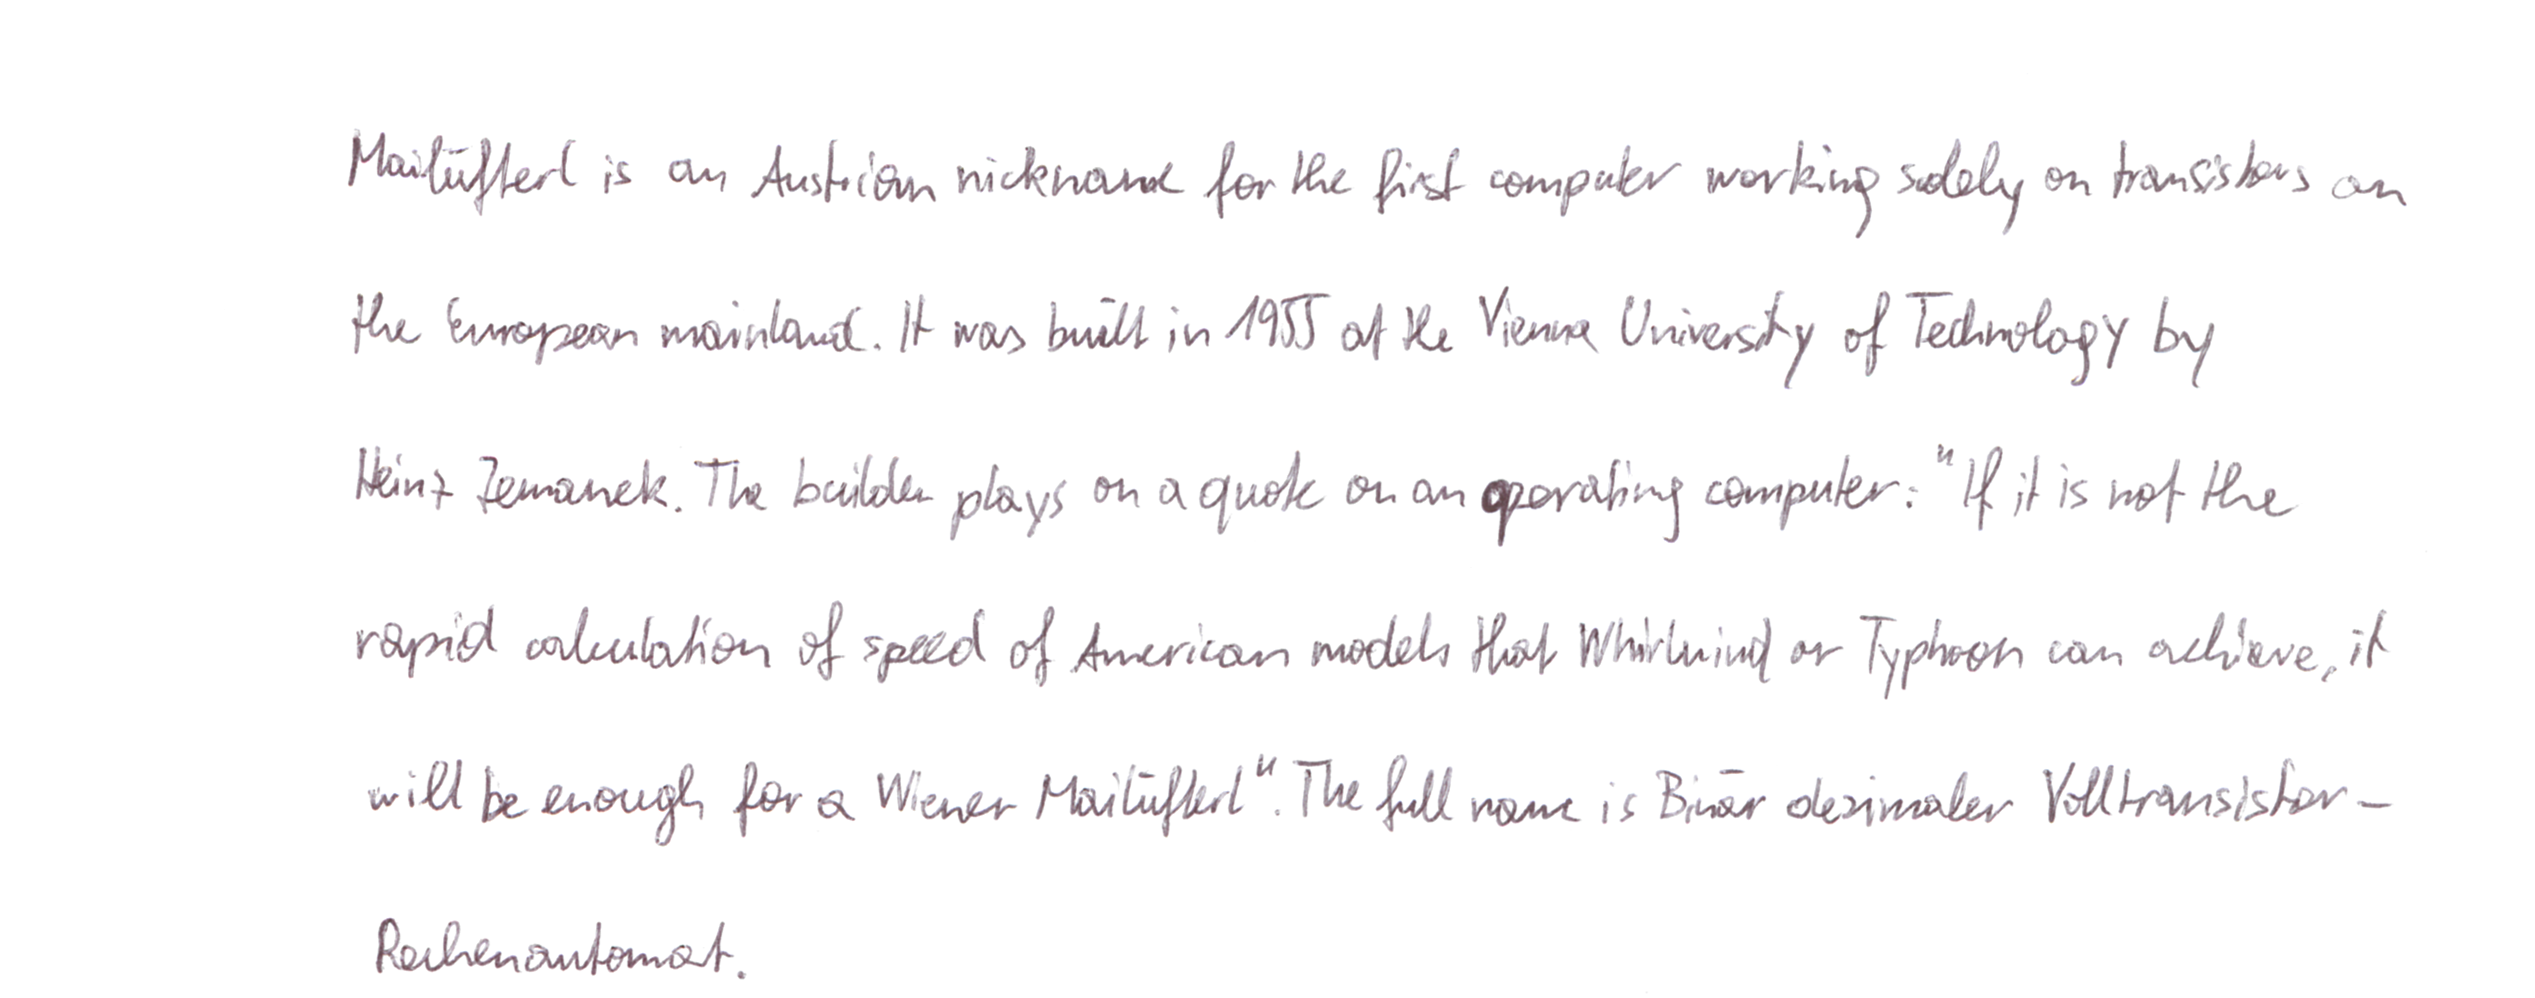 Mailüfterl is an Austrian nickname for the first computer working solely on transistors on
the European mainland. It was built in 1955 at the Vienna University of Technology by
Heinz Zemanek. The builder plays on a quote on an operating computer: "If it is not the
rapid calculation of speed of American models that Whirlwind or Typhoon can achieve, it
will be enough for a Wiener Mailüfterl". The full name is Binär dezimaler Volltransistor-
Rechenautomat.